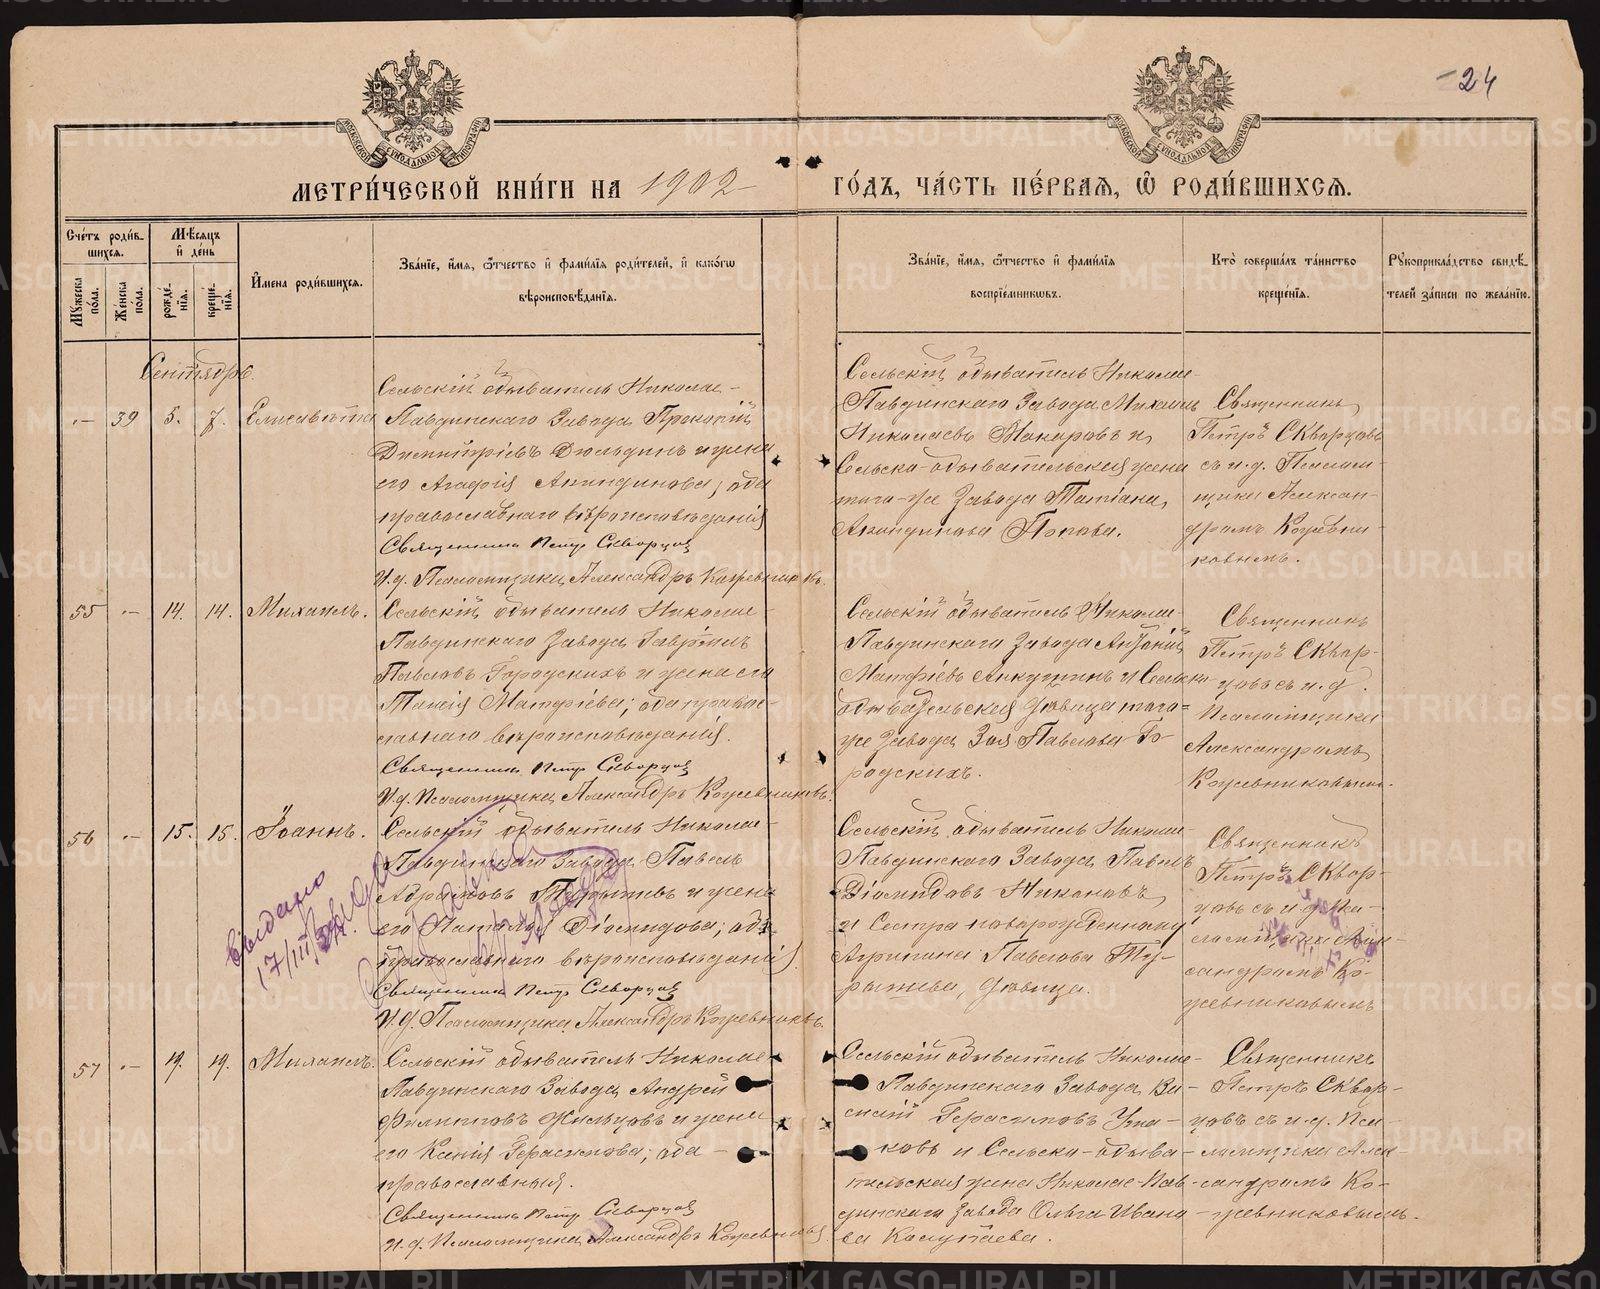 24
МОСКОВСКОЙ СѴНОДАЛЬНОЙ ТИПОГРАФІИ
МОСКОВСКОЙ СѴНОДАЛЬНОЙ ТИПОГРАФІИ
МЕТРИ́ЧЕСКОЙ КНИ́ГИ НА 1902 ГО́ДЪ, ЧА́СТЬ ПЕ́РВАѦ, Ѡ҆ РОДИ́ВШИХСѦ.
Сче́тъ роди́вшихсѧ.
Мꙋжеска по́ла.
Же́нска по́ла.
Мѣ́сѧцъ и҆ де́нь
рожде́нїѧ.
креще́нїѧ.
И҆мена роди́вшихсѧ.
Зва́нїе, и҆́мѧ, ѻ҆́тчество и҆ фами́лїѧ роди́телей, и҆ како́гѡ
вѣроисповѣ́данїѧ.
Зва́нїе, и҆́мѧ, ѻ҆́тчество и҆ фами́лїѧ
воспрїе́мникѡвъ.
Кто̀ соверша́лъ та́инство
креще́нїѧ.
Рꙋкоприкла́дство свидѣ́телей за́писи по жела́нїю.
Сентябрь.
— 39 5. 7. Елисавета
Сельскій обыватель Николае-
Павдинскаго Завода Прокопій
Димитріевъ Дюльдинъ и жена
его Агафія Акиндинова; оба
православнаго вѣроисповѣданія
Священникъ Петръ Скворцов
И.д. Псаломщика Александръ Кожевниковъ.
Сельскій обыватель Николае-
Павдинскаго Завода Михаилъ
Николаевъ Макаровъ и
Сельско-обывательская жена
того-же Завода Татіана
Акиндинова Попова.
Священникъ
Петръ Скворцовъ
съ и.д. Псалом-
щика Алексан-
дромъ Кожевни-
ковымъ.
55 — 14. 14. Михаилъ.
Сельскій обыватель Николае-
Павдинскаго Завода Гавріилъ
Павловъ Городскихъ и жена его
Таисія Матфіева; оба правос-
лавнаго вѣроисповѣданія.
Священникъ Петръ Скворцов
И.д. Псаломщика Александръ Кожевниковъ.
Сельскій обыватель Николае-
Павдинскаго Завода Антоній
Матфіевъ Анкушинъ и Сельско-
обывательская дѣвица того-
же Завода Зоя Павлова Го-
родскихъ.
Священникъ
Петръ Сквор-
цовъ съ и.д.
Псаломщика
Александромъ
Кожевниковымъ.
56 — 15. 15. Іоаннъ.
Сельскій обыватель Николае-
Павдинскаго Завода Павелъ
и жена
его Наталія Діомидова; оба
православнаго вѣроисповѣданія
Священникъ Петръ Скворцов
И.д. Псаломщика Александръ Кожевниковъ.
Выдано
17/III
Сельскій обыватель Николае-
Павдинскаго Завода Павелъ
Діомидовъ Никоновъ
и Сестра новорожденному
Агрипина Павлова
дѣвица.
Священникъ
Петръ Сквор-
цовъ съ и.д. Пса-
ломщика Алек-
сандромъ Ко-
жевниковымъ
57 — 19. 19. Михаилъ.
Сельскій обыватель Николае-
Павдинскаго Завода Андрей
Филипповъ Жильцовъ и жена
его Ксенія Герасимова; оба
православныя.
Священникъ Петръ Скворцов
И.д. Псаломщика Александръ Кожевниковъ
Сельскій обыватель Николае-
Павдинскаго Завода Ва-
силій Герасимовъ Уша-
ковъ и Сельско-обыва-
тельская жена Николае-Пав-
динскаго Завода Ольга Ивано-
ва Колупаева.
Священникъ
Петръ Сквор-
цовъ съ и.д. Пса-
ломщика Алек-
сандромъ Ко-
жевниковымъ.
METRIKI.GASO-URAL.RU